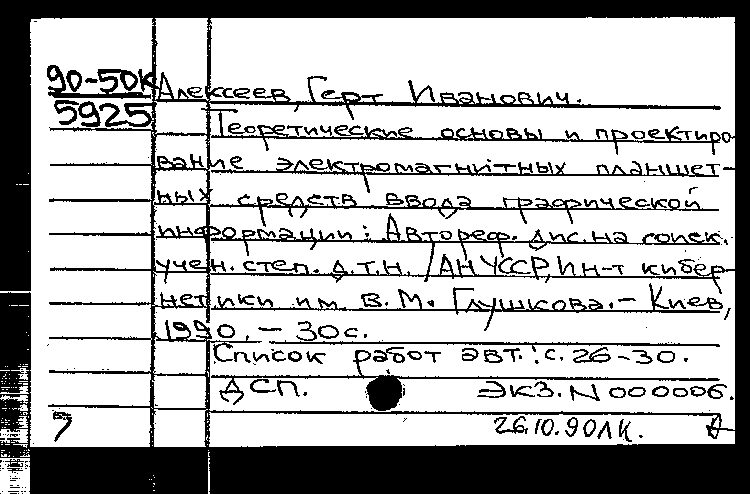 90-50К Алексеев, Герт Иванович.
5925 Теоретические основы и проектиро-
вание электромагнитных планшет-
ных средств ввода графической
информации: Автореф. дис. на соиск.
учен. степ. д.т.н. /АН УССР, Ин-т кибер-
нетики им В.М. Глушкова.- Киев,
1990. - 30с.
Список работ авт.: с. 26-30.
ДСП. ЭКЗ. N 000006.
26.10.90 ЛК.